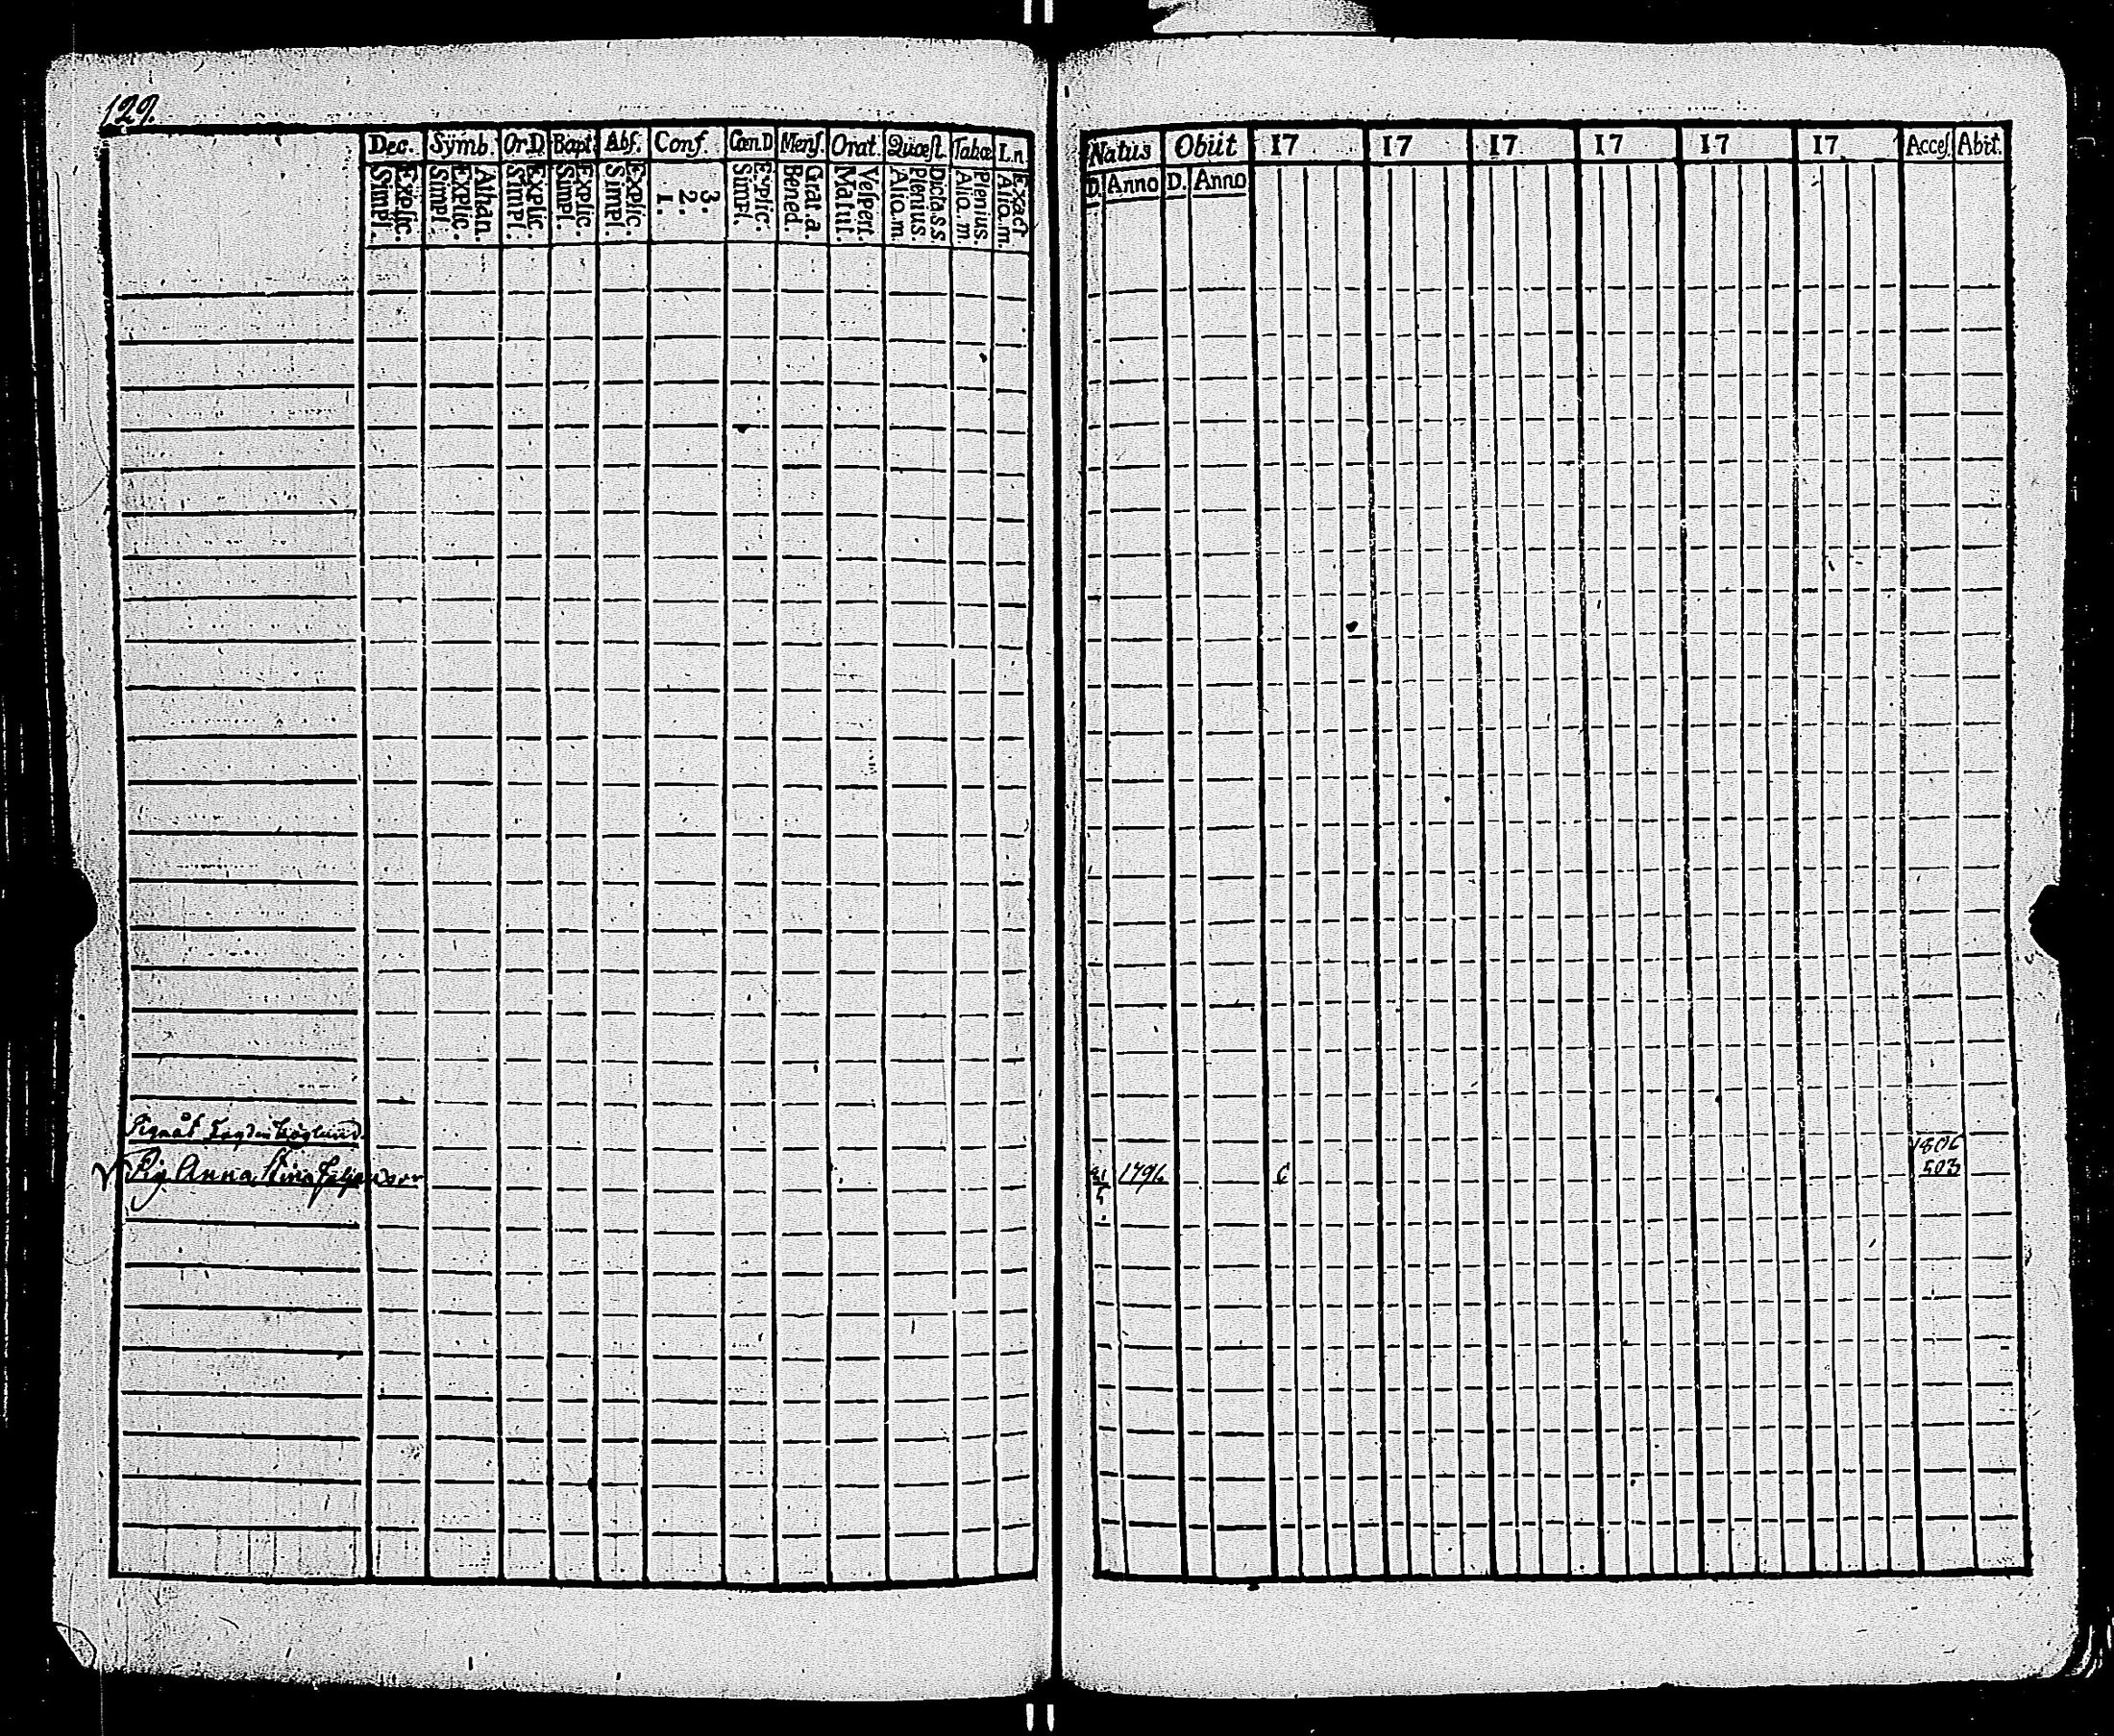 129.
Dec. Symb. Or.D. Bapt. Abs. Conf. Cœn.D. Mens. Orat. Quæst. Tabœ L.n.
Explic. Simpl. Athan. Explic. Simpl. Explic. Simpl. Explic. Simpl. Explic. Simpl. 3. 2. 1. Explic. Simpl. Grat.a. Bened. Vespert. Matut. Dicta.s.s. Plenius. Aliq.m. Plenius. Aliq.m. Exact Aliq.m.
Natus Obiit 17 17 17 17 17 17 Acces. Abit.
D. Anno D. Anno
1806
Pig Anna Stina 1796 503